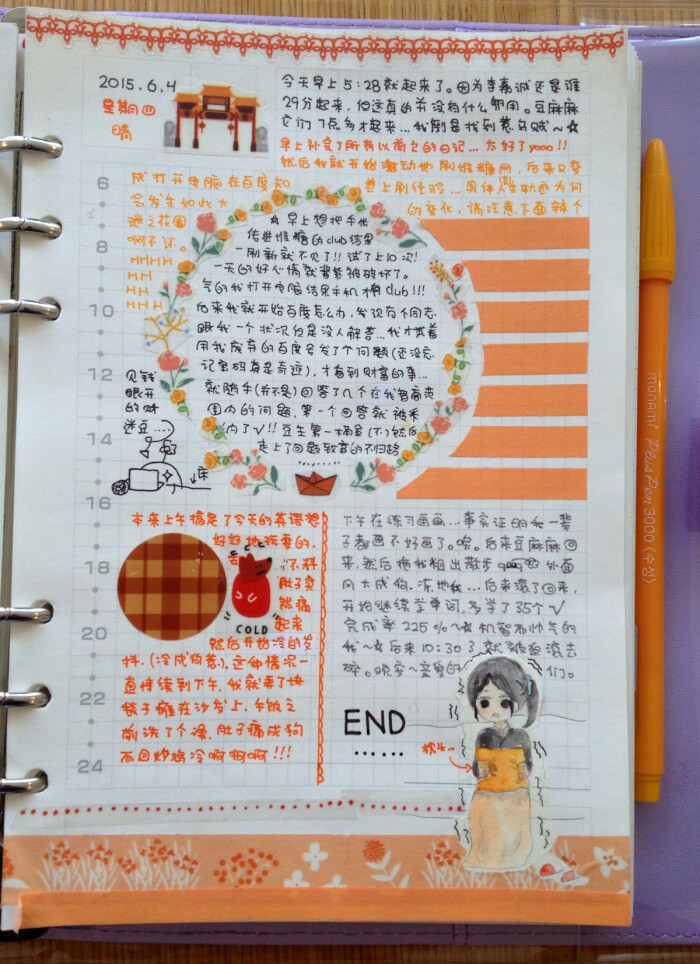 2015.6.4
星期四
晴
今天早上5:28就起来了。因为李嘉诚还是谁
29分起来,但这真的并没有什么卵用。豆麻麻
它们7点多才起来...我倒是找到葱
早上补完了所有以前欠的日记...太好了yooo!!
然后我就开始激动地刷堆糖网,后来又变
成打开电脑在百度知道上刷经验...具体心路轨迹为何
会发生如此大的变化,请注意下面这个
迷之花圈
啊不 环。
HHHH
HH
HH
HHH
☆ 早上想把手帐
传进堆糖的club结果
一刷新就不见了!!试了上10次!
一天的好心情就整整被破坏了。
气的我打开电脑结果手机 club!!!
后来我就开始百度怎么办,发现有不同志
跟我一个状况但是没人解答...我才
用我废弃的百度号发了个问题(还没忘
记密码真是奇迹),才看到财富的事...
就随手(并不是)回答了几个在我智商范
围内的问题,第一个回答就被采
纳了√!!豆生第一桶金(不)然后
走上了回题致富的不归路
见钱
眼开
的财
迷豆...
床
6
8
10
12
14
16
18
20
22
24
本来上午搞定了今天的英语想
好好地我耍的,
去
怀料
肚子突
然痛
起来
COLD
然后开始冷的发
抖.(冷成狗葱).这种情况一
直持续到下午.我就裹了块
毯子瘫在沙发上.午饭之
前洗了个澡.肚子痛成狗
而且炒鸡冷啊啊啊!!!
下午在练习画画...事实证明我一辈
子都画不好画了。唉。后来豆麻麻回
来,然后拖我粗出散步 外面
风大成狗.冻 我...后来滚了回来,
开始继续学单词,多学了35个√
完成率225%~☆ 机智而帅气的
我~☆ 后来10:30了就 滚去
碎。晚安~亲爱的 们。
END
......
枕头→
monami Plus Pen 3000 <수성>